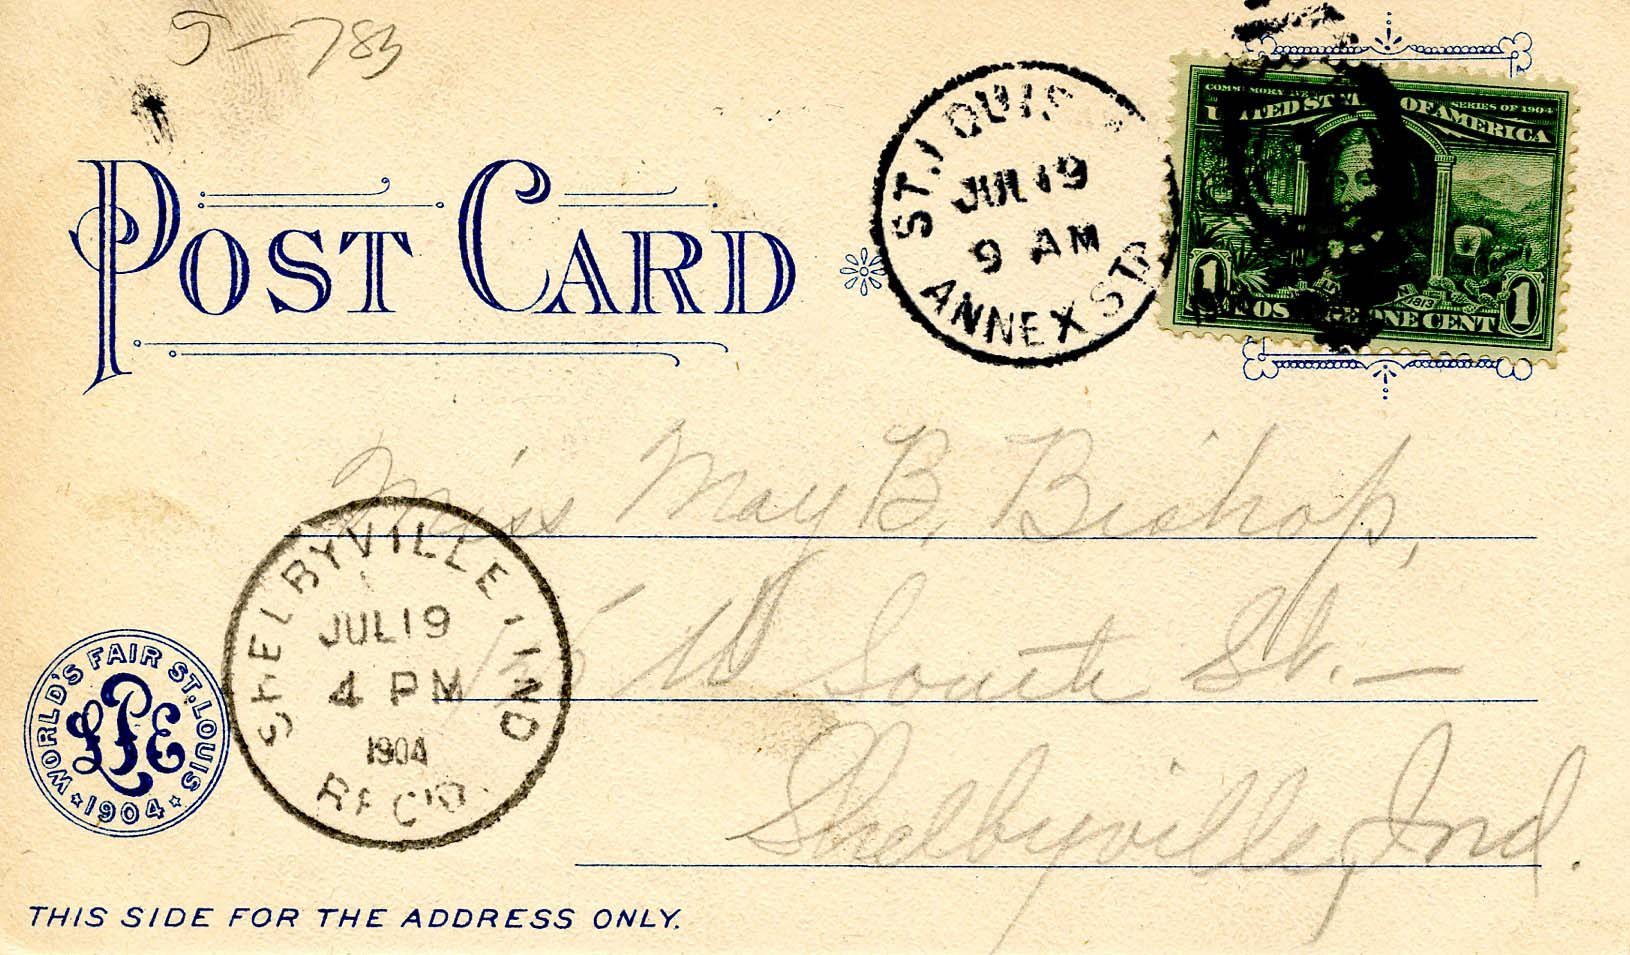 5-783
COMMEMORATIVE SERIES OF 1904
UNITED STATES OF AMERICA
1803
1 POSTAGE ONE CENT 1
POST CARD
ST. LOUIS
JUL 19
9 AM
ANNEX STA
Miss May B. Bishop,
W South St. —
Shelbyville, Ind.
SHELBYVILLE IND
JUL 19
4 PM
1904
REC'D.
WORLD'S FAIR ST. LOUIS
LPE
1904
THIS SIDE FOR THE ADDRESS ONLY.